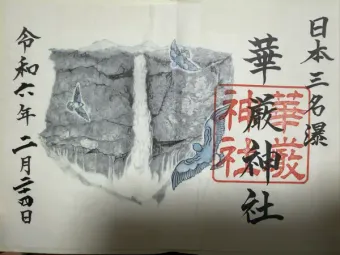 日本三名瀑
華厳神社
華厳
神社
令和六年二月二十四日